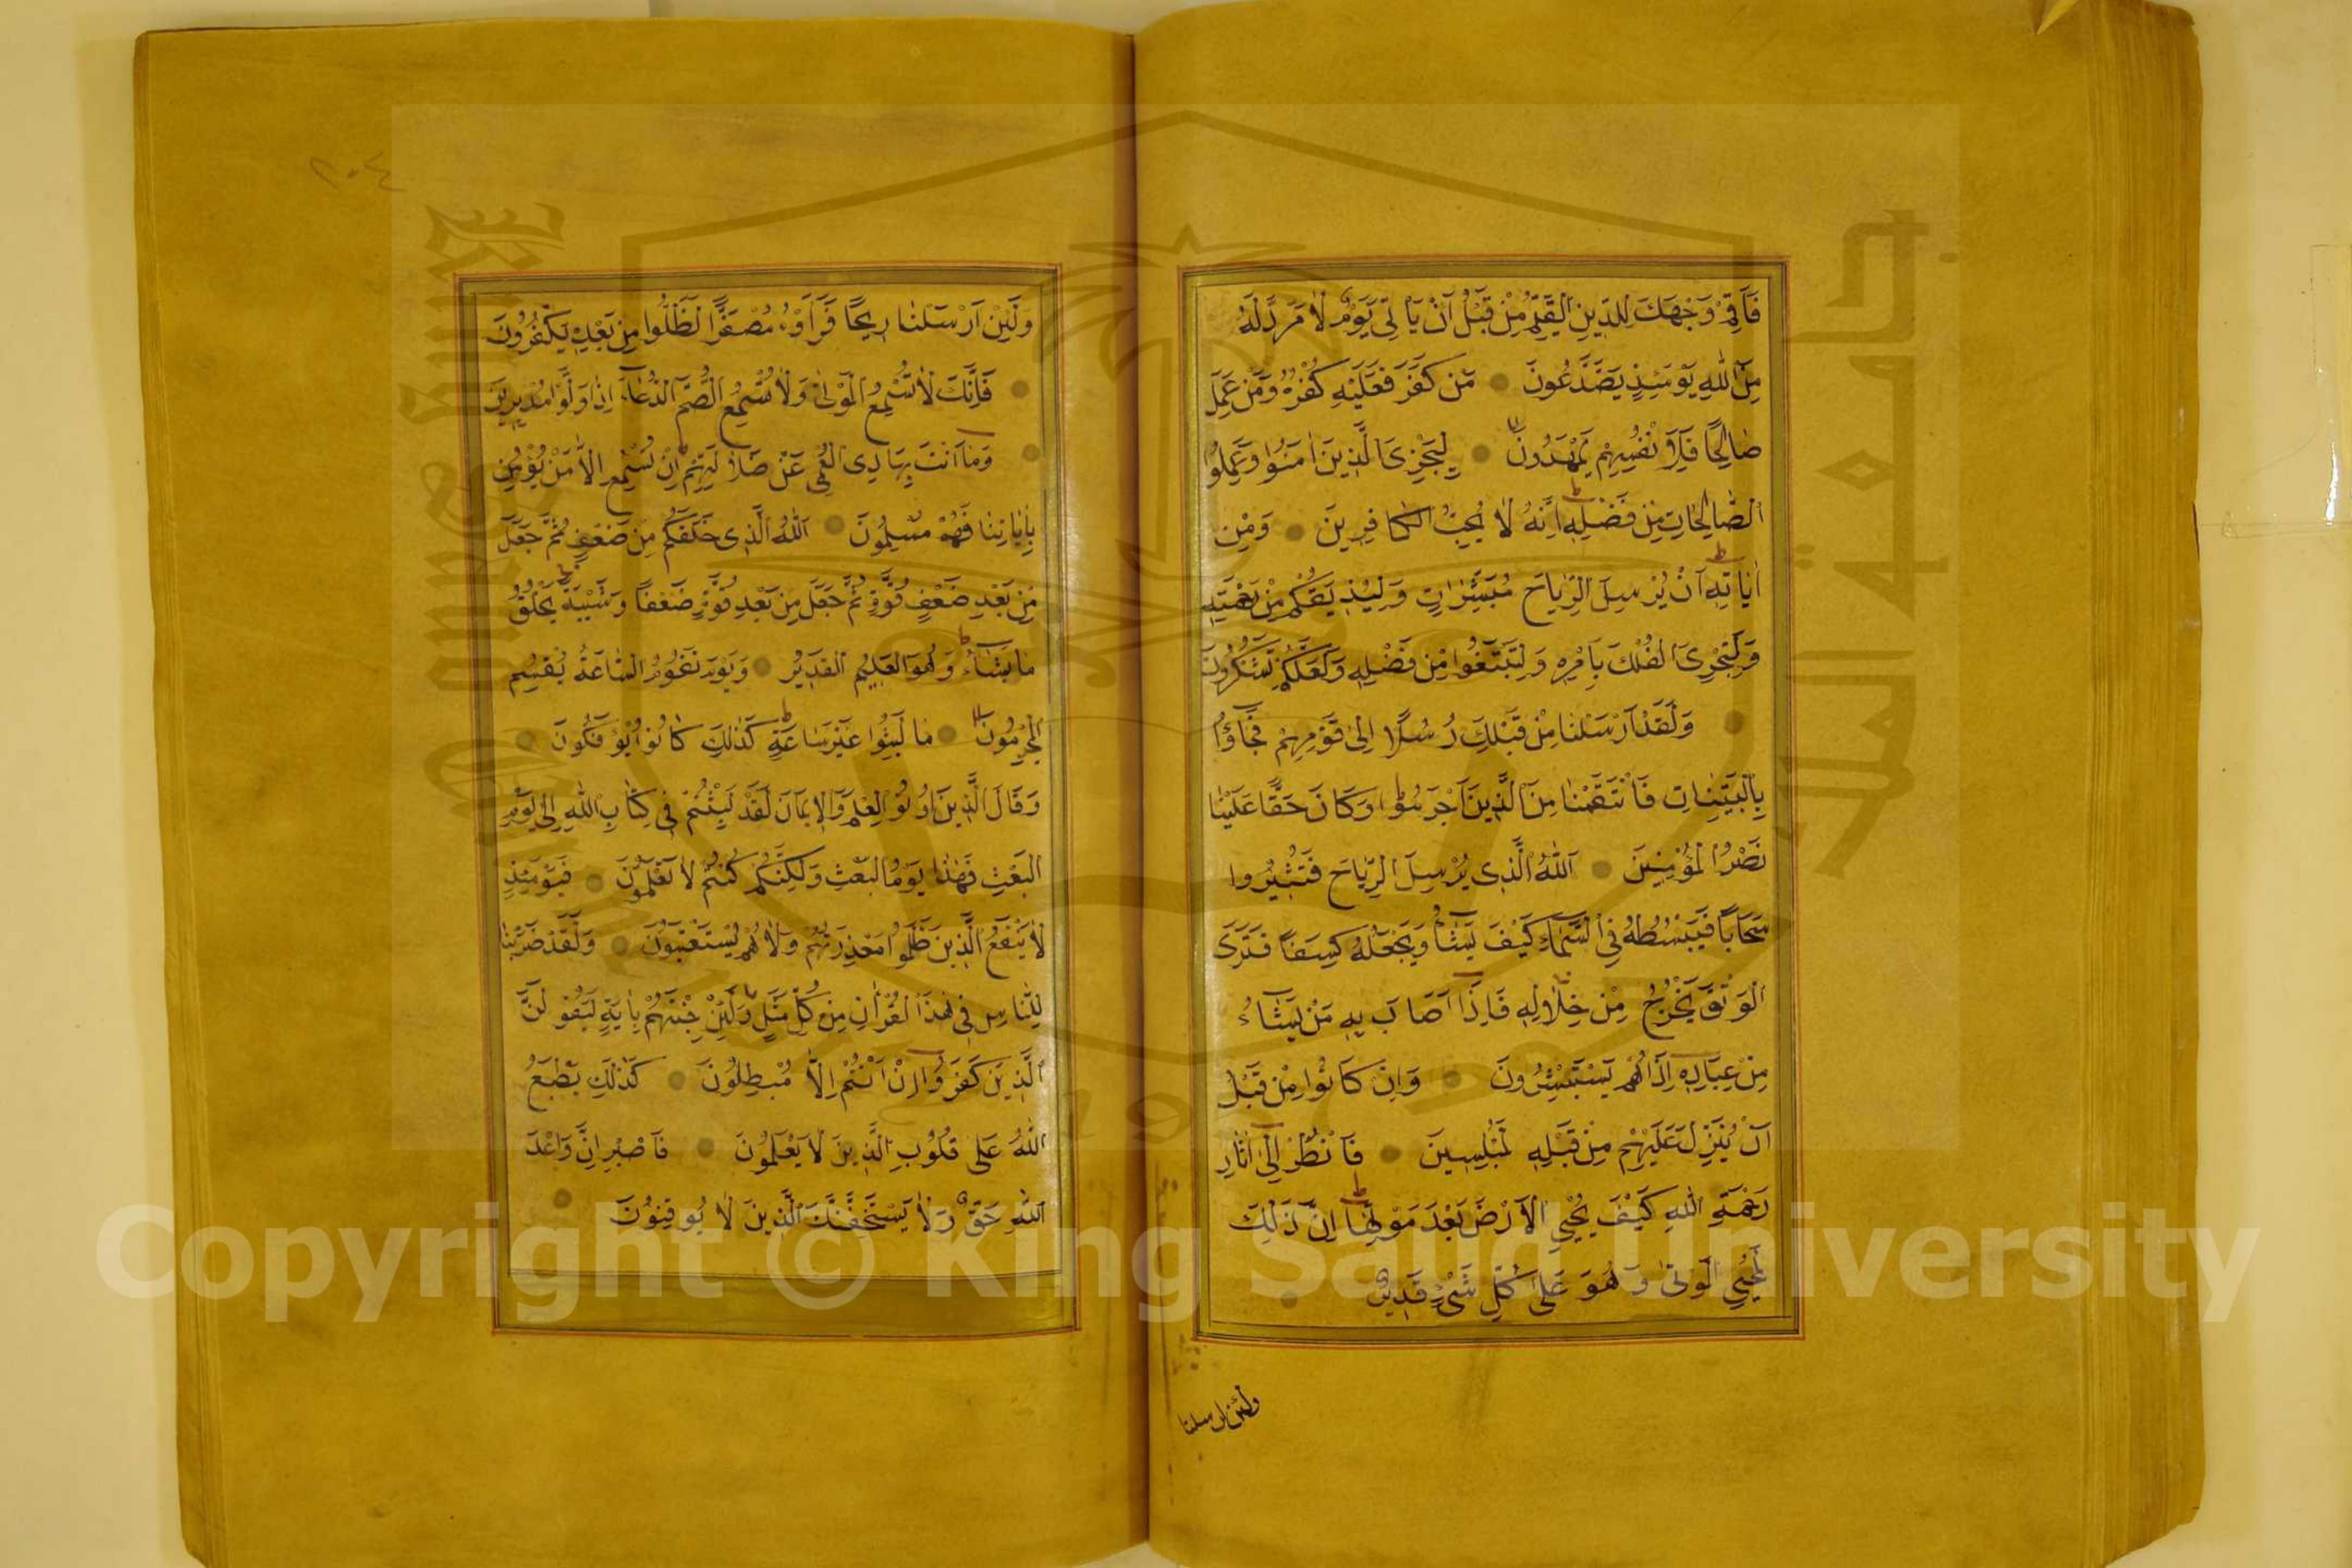 فَاَقِمْ وَجْهَكَ لِلدّينِ الْقَيِّمِ مِنْ قَبْلِ اَنْ يَاْتِىَ يَوْمٌ لَا مَرَدَّ لَهُ
مِنَ اللّٰهِ يَوْمَئِذٍ يَصَّدَّعُونَ مَنْ كَفَرَ فَعَلَيْهِ كُفْرُهُ وَمَنْ عَمِلَ
صَالِحًا فَلِاَنْفُسِهِمْ يَمْهَدُونَ لِيَجْزِىَ الَّذِينَ اٰمَنُوا وَعَمِلُوا
الصَّالِحَاتِ مِنْ فَضْلِهِ اِنَّهُ لَا يُحِبُّ الْكَافِرِينَ وَمِنْ
اٰيَاتِهِ اَنْ يُرْسِلَ الرِّيَاحَ مُبَشِّرَاتٍ وَلِيُذِيقَكُمْ مِنْ رَحْمَتِهِ
وَلِتَجْرِىَ الْفُلْكُ بِاَمْرِهِ وَلِتَبْتَغُوا مِنْ فَضْلِهِ وَلَعَلَّكُمْ تَشْكُرُونَ
وَلَقَدْ اَرْسَلْنَا مِنْ قَبْلِكَ رُسُلًا اِلٰى قَوْمِهِمْ فَجَاؤُا
بِالْبَيِّنَاتِ فَانْتَقَمْنَا مِنَ الَّذِينَ اَجْرَمُوا وَكَانَ حَقًّا عَلَيْنَا
نَصْرُ الْمُؤْمِنِينَ اَللّٰهُ الَّذِى يُرْسِلُ الرِّيَاحَ فَتُثِيرُ
سَحَابًا فَيَبْسُطُهُ فِى السَّمَاءِ كَيْفَ يَشَاءُ وَيَجْعَلُهُ كِسَفًا فَتَرَى
الْوَدْقَ يَخْرُجُ مِنْ خِلَالِهِ فَاِذَا اَصَابَ بِهِ مَنْ يَشَاءُ
مِنْ عِبَادِهِ اِذَا هُمْ يَسْتَبْشِرُونَ وَاِنْ كَانُوا مِنْ قَبْلِ
اَنْ يُنَزَّلَ عَلَيْهِمْ مِنْ قَبْلِهِ لَمُبْلِسِينَ فَانْظُرْ اِلٰى اٰثَارِ
رَحْمَةِ اللّٰهِ كَيْفَ يُحْيِى الْاَرْضَ بَعْدَ مَوْتِهَا اِنَّ ذٰلِكَ
لَمُحْيِى الْمَوْتٰى وَهُوَ عَلٰى كُلِّ شَىْءٍ قَدِيرٌ
ولئن ارسلنا
٢٠٤
وَلَئِنْ اَرْسَلْنَا رِيحًا فَرَاَوْهُ مُصْفَرًّا لَظَلُّوا مِنْ بَعْدِهِ يَكْفُرُونَ
فَاِنَّكَ لَا تُسْمِعُ الْمَوْتٰى وَلَا تُسْمِعُ الصُّمَّ الدُّعَاءَ اِذَا وَلَّوْا مُدْبِرِينَ
وَمَا اَنْتَ بِهَادِى الْعُمْىِ عَنْ ضَلَالَتِهِمْ اِنْ تُسْمِعُ اِلَّا مَنْ يُؤْمِنُ
بِاٰيَاتِنَا فَهُمْ مُسْلِمُونَ اَللّٰهُ الَّذِى خَلَقَكُمْ مِنْ ضَعْفٍ ثُمَّ جَعَلَ
مِنْ بَعْدِ ضَعْفٍ قُوَّةً ثُمَّ جَعَلَ مِنْ بَعْدِ قُوَّةٍ ضَعْفًا وَشَيْبَةً يَخْلُقُ
مَا يَشَاءُ وَهُوَ الْعَلِيمُ الْقَدِيرُ وَيَوْمَ تَقُومُ السَّاعَةُ يُقْسِمُ
الْمُجْرِمُونَ مَا لَبِثُوا غَيْرَ سَاعَةٍ كَذٰلِكَ كَانُوا يُؤْفَكُونَ
وَقَالَ الَّذِينَ اُوتُوا الْعِلْمَ وَالْاِيمَانَ لَقَدْ لَبِثْتُمْ فِى كِتَابِ اللّٰهِ اِلٰى يَوْمِ
الْبَعْثِ فَهٰذَا يَوْمُ الْبَعْثِ وَلٰكِنَّكُمْ كُنْتُمْ لَا تَعْلَمُونَ فَيَوْمَئِذٍ
لَا يَنْفَعُ الَّذِينَ ظَلَمُوا مَعْذِرَتُهُمْ وَلَا هُمْ يُسْتَعْتَبُونَ وَلَقَدْ ضَرَبْنَا
لِلنَّاسِ فِى هٰذَا الْقُرْاٰنِ مِنْ كُلِّ مَثَلٍ وَلَئِنْ جِئْتَهُمْ بِاٰيَةٍ لَيَقُولَنَّ
الَّذِينَ كَفَرُوا اِنْ اَنْتُمْ اِلَّا مُبْطِلُونَ كَذٰلِكَ يَطْبَعُ
اللّٰهُ عَلٰى قُلُوبِ الَّذِينَ لَا يَعْلَمُونَ فَاصْبِرْ اِنَّ وَعْدَ
اللّٰهِ حَقٌّ وَلَا يَسْتَخِفَّنَّكَ الَّذِينَ لَا يُوقِنُونَ
Copyright © King Saud University